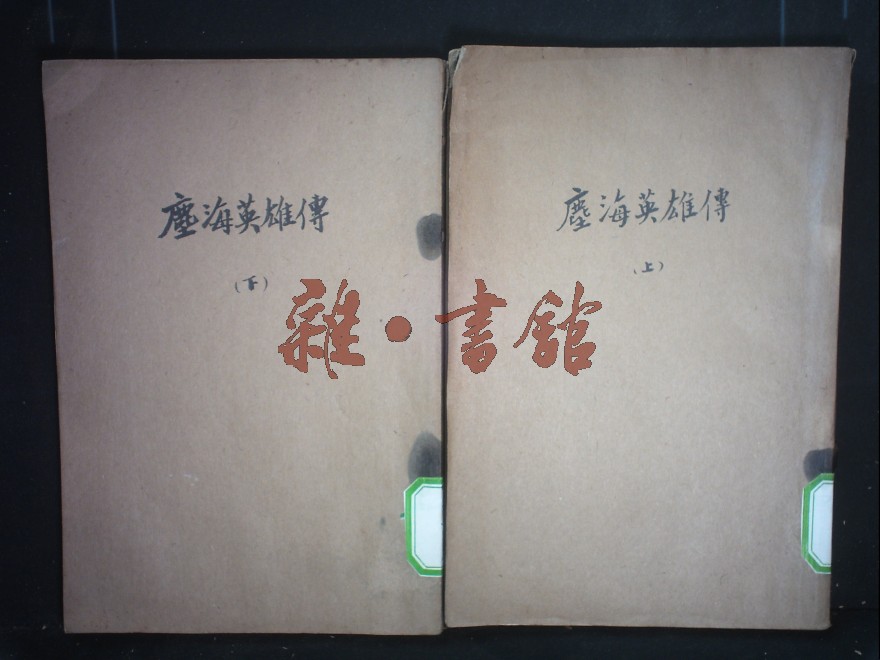 塵海英雄傳
（下）
塵海英雄傳
（上）
雜·書館